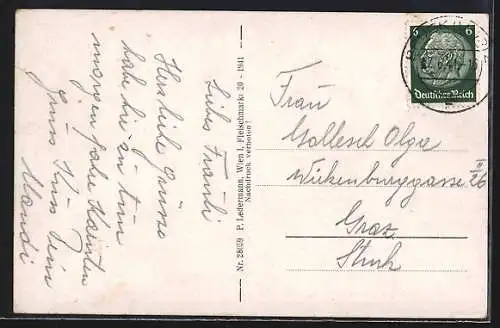 Liebs Frauli
Herzliche Grüsse
habe hie zu tun
morgen fahre Kärnten
Gruss Küss Dein
Mandi
Nr. 28039 P. Ledermann, Wien I, Fleischmarkt 20 - 1941
Nachdruck verboten!
6 6
Deutsches Reich
Frau
Gollesch Olga
Wickenburggasse 26
II
Graz
Stmk